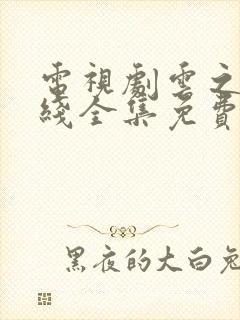 電視劇雲之
綫全集免費
黑夜的大白兔